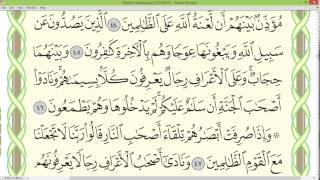 مُؤَذِّنٌۢ بَيْنَهُمْ أَن لَّعْنَةُ ٱللَّهِ عَلَى ٱلظَّٰلِمِينَ ٤٤ ٱلَّذِينَ يَصُدُّونَ عَن
سَبِيلِ ٱللَّهِ وَيَبْغُونَهَا عِوَجًا وَهُم بِٱلْءَاخِرَةِ كَٰفِرُونَ ٤٥ وَبَيْنَهُمَا
حِجَابٌ وَعَلَى ٱلْأَعْرَافِ رِجَالٌ يَعْرِفُونَ كُلًّۢا بِسِيمَىٰهُمْ وَنَادَوْا۟
أَصْحَٰبَ ٱلْجَنَّةِ أَن سَلَٰمٌ عَلَيْكُمْ لَمْ يَدْخُلُوهَا وَهُمْ يَطْمَعُونَ ٤٦
۞ وَإِذَا صُرِفَتْ أَبْصَٰرُهُمْ تِلْقَآءَ أَصْحَٰبِ ٱلنَّارِ قَالُوا۟ رَبَّنَا لَا تَجْعَلْنَا
مَعَ ٱلْقَوْمِ ٱلظَّٰلِمِينَ ٤٧ وَنَادَىٰٓ أَصْحَٰبُ ٱلْأَعْرَافِ رِجَالًا يَعْرِفُونَهُم